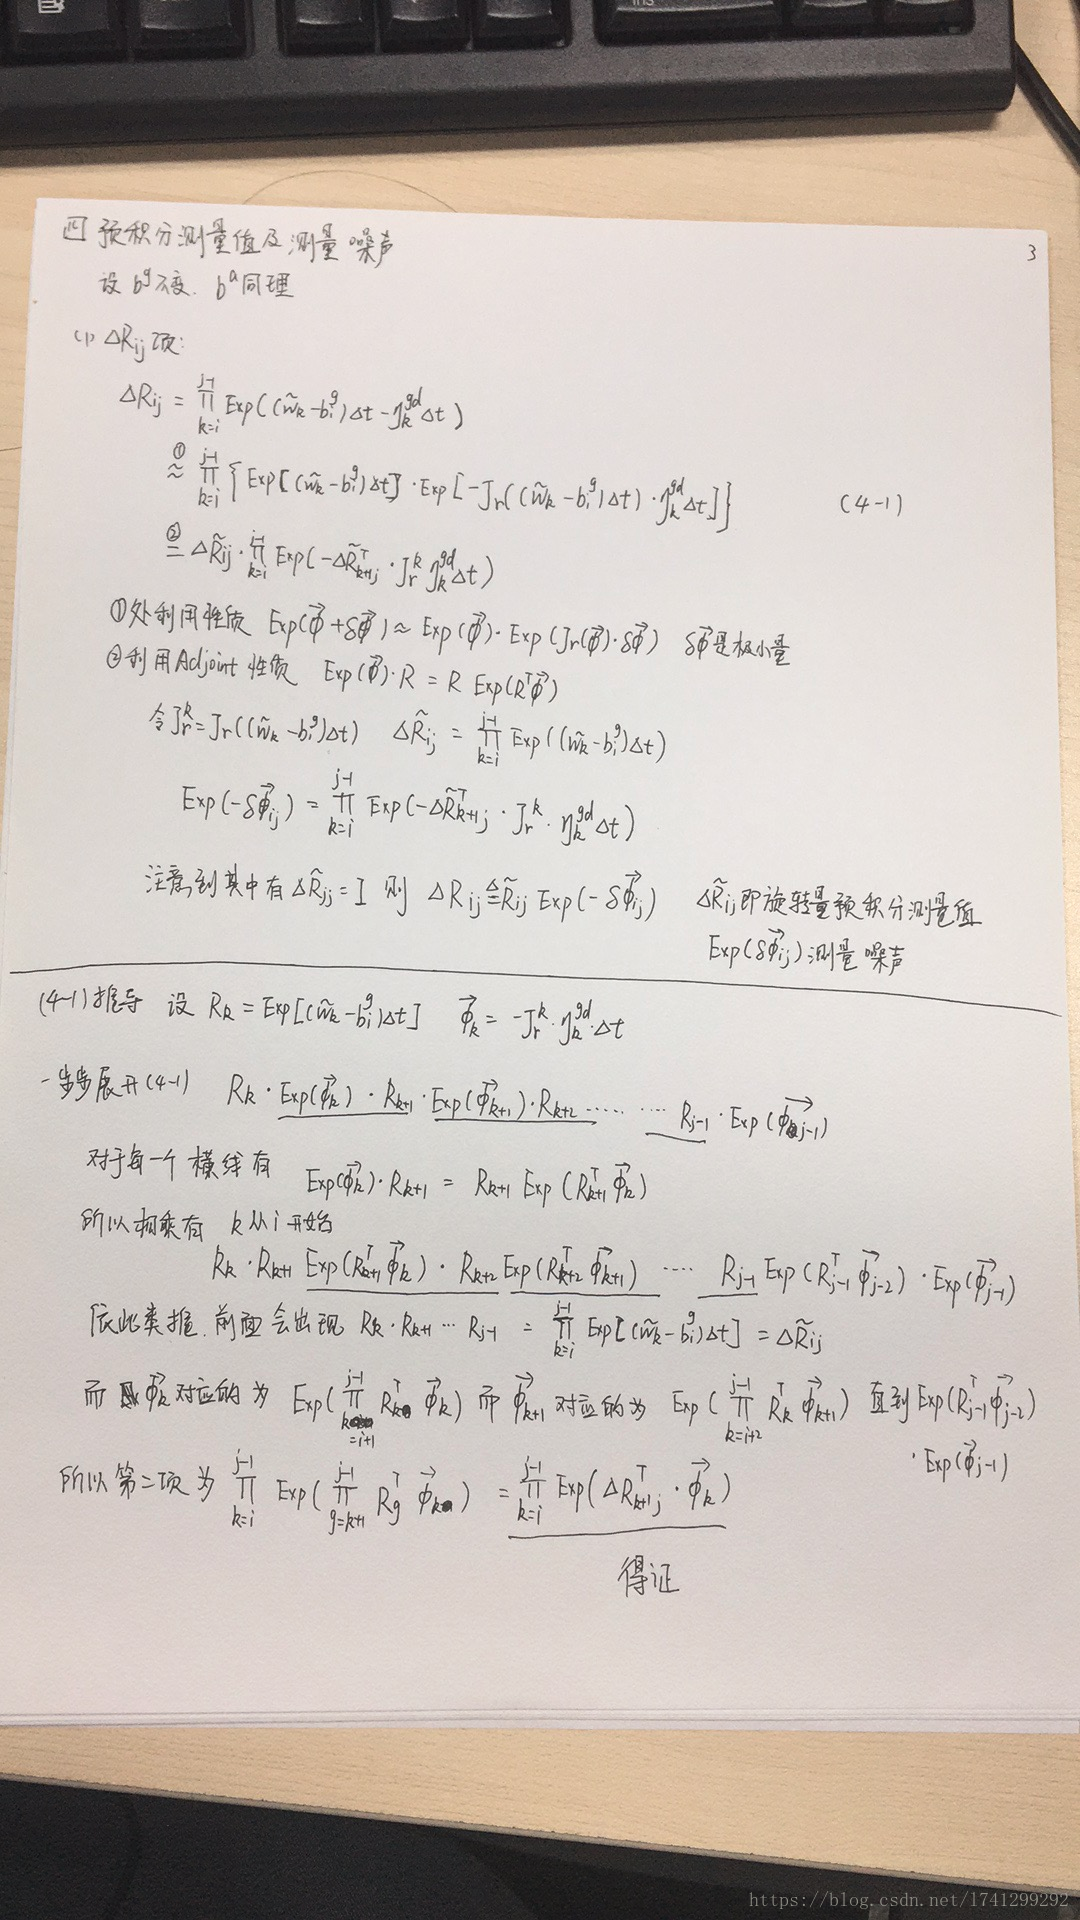 3
四 预积分测量值及测量噪声
设 b^g 不变. b^a 同理
(1) ΔR_ij 项:
ΔR_ij = ∏_{k=i}^{j-1} Exp((w̃_k - b_i^g)Δt - η_k^{gd}Δt)
①≈ ∏_{k=i}^{j-1} {Exp[(w̃_k - b_i^g)Δt] · Exp[-J_r((w̃_k - b_i^g)Δt) · η_k^{gd}Δt]} (4-1)
②= ΔR̃_ij · ∏_{k=i}^{j-1} Exp(-ΔR̃_{k+1j}^T · J_r^k η_k^{gd}Δt)
①处利用性质 Exp(φ⃗ + δφ⃗) ≈ Exp(φ⃗) · Exp(J_r(φ⃗) · δφ⃗) δφ⃗是极小量
②利用Adjoint 性质 Exp(φ⃗) · R = R Exp(R^Tφ⃗)
令 J_r^k = J_r((w̃_k - b_i^g)Δt) ΔR̃_ij = ∏_{k=i}^{j-1} Exp((w̃_k - b_i^g)Δt)
Exp(-δφ⃗_ij) = ∏_{k=i}^{j-1} Exp(-ΔR̃_{k+1j}^T · J_r^k · η_k^{gd}Δt)
注意到其中有 ΔR̃_jj = I 则 ΔR_ij ≜ R̃_ij Exp(-δφ⃗_ij) ΔR̃_ij 即旋转量预积分测量值
Exp(δφ⃗_ij) 测量噪声
(4-1)推导 设 R_k = Exp[(w̃_k - b_i^g)Δt] φ⃗_k = -J_r^k · η_k^{gd} · Δt
一步步展开(4-1) R_k · Exp(φ⃗_k) · R_{k+1} · Exp(φ⃗_{k+1}) · R_{k+2} ...... .... R_{j-1} · Exp(φ⃗_{j-1})
对于每一个横线有 Exp(φ⃗_k) · R_{k+1} = R_{k+1} Exp(R_{k+1}^T φ⃗_k)
所以相乘有 k从i开始
R_k · R_{k+1} Exp(R_{k+1}^T φ⃗_k) · R_{k+2} Exp(R_{k+2}^T φ⃗_{k+1}) .... R_{j-1} Exp(R_{j-1}^T φ⃗_{j-2}) · Exp(φ⃗_{j-1})
依此类推. 前面会出现 R_k · R_{k+1} ... R_{j-1} = ∏_{k=i}^{j-1} Exp[(w̃_k - b_i^g)Δt] = ΔR̃_ij
而 φ⃗_k 对应的为 Exp(∏_{k=i+1}^{j-1} R_k^T φ⃗_k) 而 φ⃗_{k+1} 对应的为 Exp(∏_{k=i+2}^{j-1} R_k^T φ⃗_{k+1}) 直到 Exp(R_{j-1}^T φ⃗_{j-2})
· Exp(φ⃗_{j-1})
所以第二项为 ∏_{k=i}^{j-1} Exp(∏_{g=k+1}^{j-1} R_g^T φ⃗_k) = ∏_{k=i}^{j-1} Exp(ΔR_{k+1j}^T · φ⃗_k)
得证
https://blog.csdn.net/1741299292